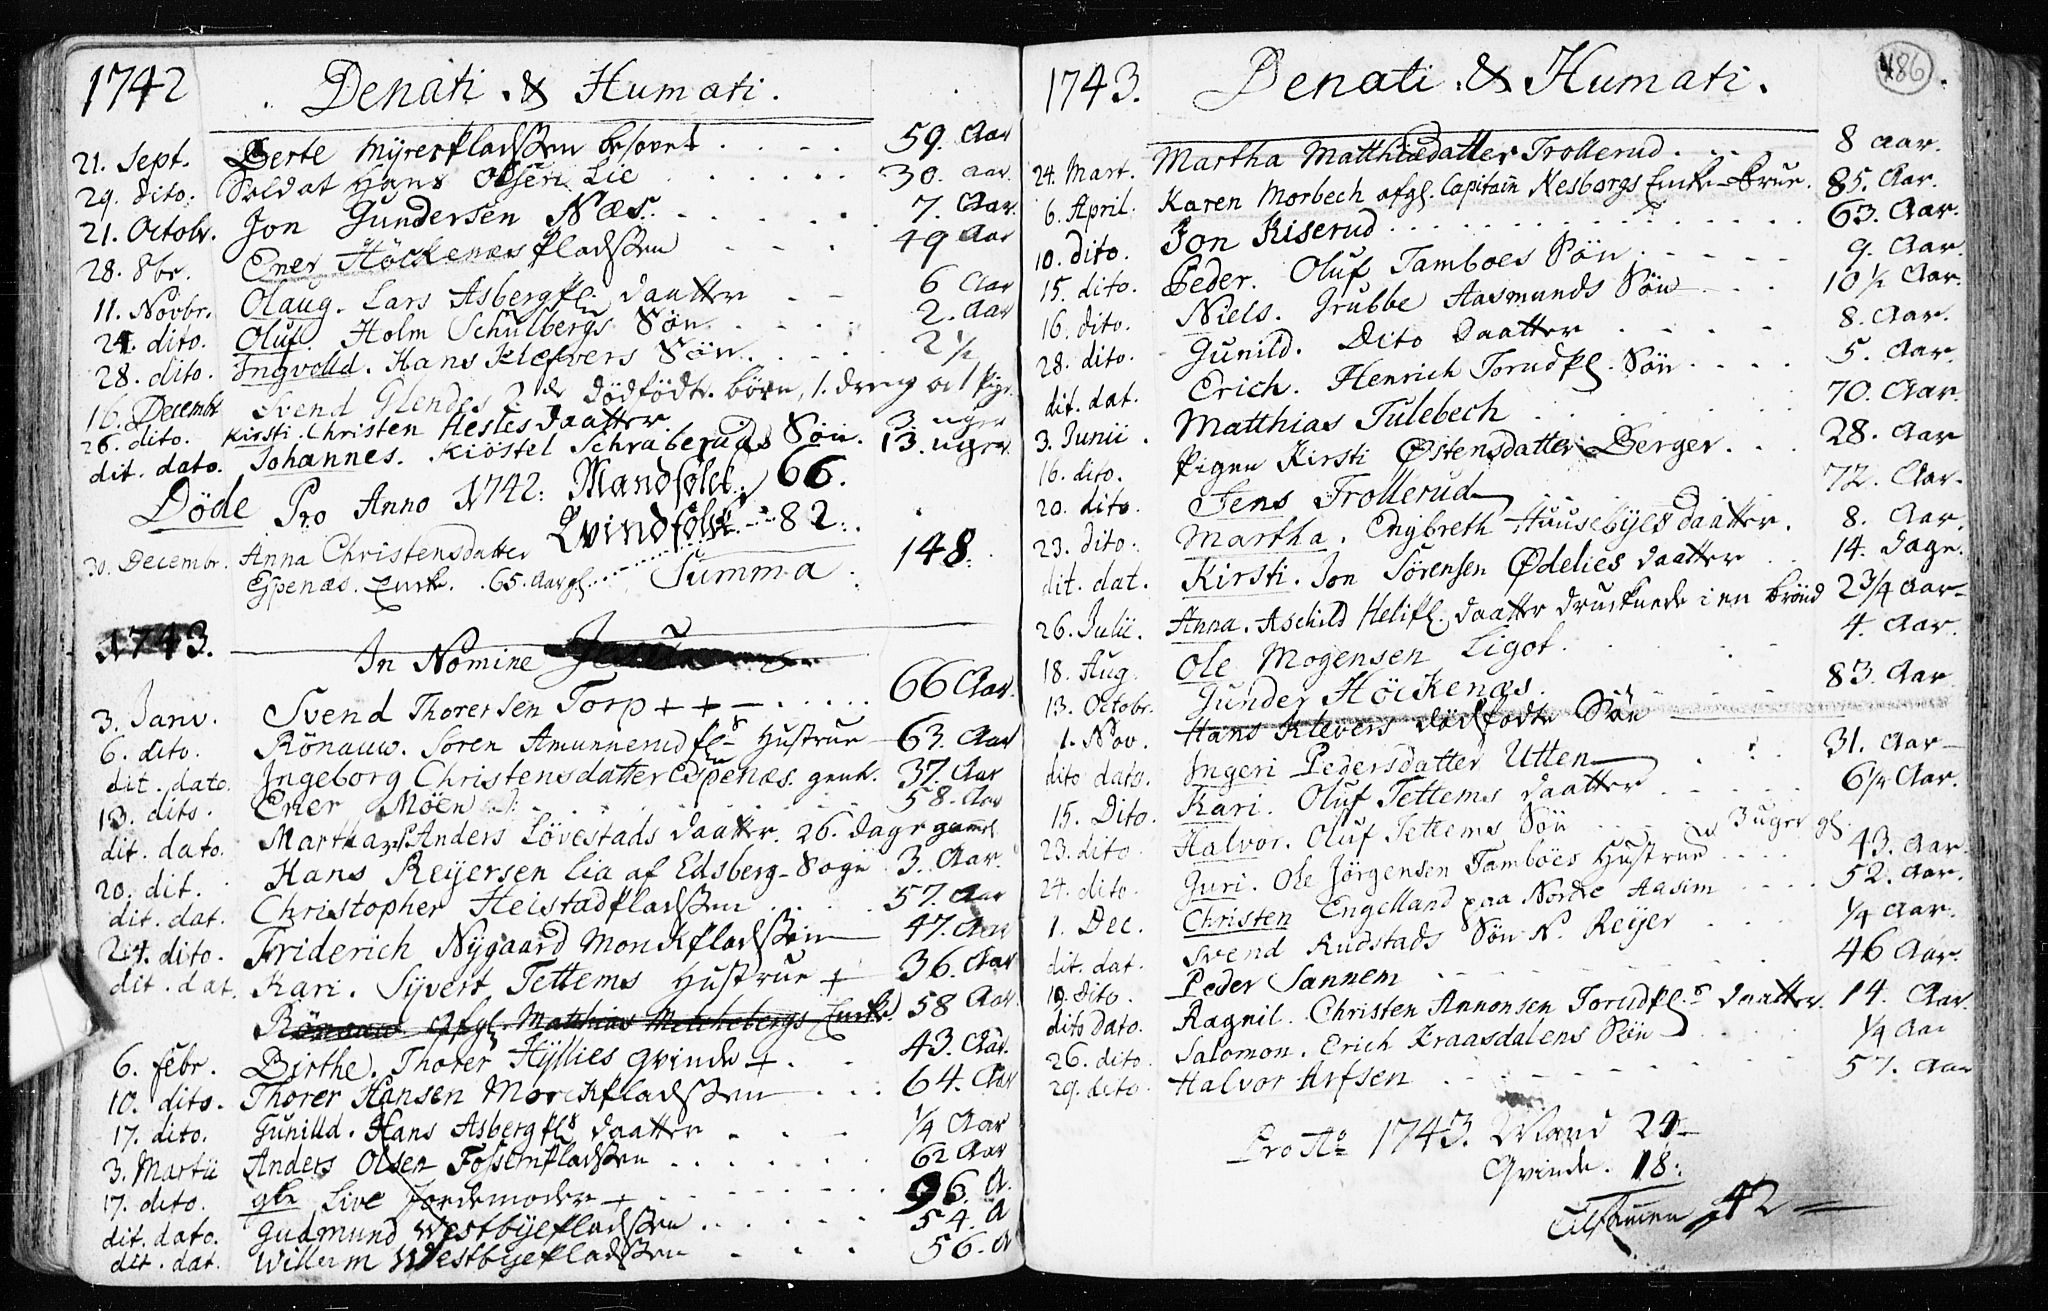 1742 Denati & Humati.
21. Sept. Berte Myrerpladssen besovet . . . . 59. Aar
29. Dito. Soldat Hans Olsen Lie . . . . . . 30. Aar.
21. Octobr. Jon Gundersen Næs. . . . . . 7. Aar.
28. 8br. Ener Höckenæspladssen . . . . 49 Aar
11. Novbr. Olaug. Lars Asbergpl. Daatter . . 6 Aar
24. dito. Oluf. Holm Schulbergs Sön . . . . 2. Aar
28. dito. Ingvolld. Hans Klefvers Sön. . . . . 2 1/2
16. Decembr Svend Glendes 2de dödfödte börn, 1. dreng oc 1 pige
26. dito. Kirsti. Christen Hesles Daatter. 3. uger
dit. dato. Johannes. Kiöstel Schraberuds Sön. 13. uger.
Döde Pro Anno 1742: Mandfolck. 66.
Qvindfolck. 82.
30. Decembr. Anna Christensdatter
Espenæs. Encke. 65. Aar gl. Summa . 148.
1743.
In Nomine Jesu
3. Janv. Svend Thorersen Torp + + . . . . . 66 Aar.
6. dito. Rönauw. Soren Amunnerud pls Hustrue 63. Aar
dit. dato. Ingeborg Christensdatter Espenæs. 37. Aar
13. dito. Ener Möen . . . . 58. Aar
dit. dato. Martha Anders Lövestads Daatter. 26. Dage gammel
20. dit. Hans Reyersen Lia af Edsberg Sogn 3. Aar.
dit. dat. Christopher Heistadpladssen . . . 57. Aar
24. dito. Friderich Nygaard Monckpladssen 47. Aar
dit. dat. Kari. Syvert Tettems Hustrue + 36. Aar
Rönauw Afgl. Matthias Melchebergs Encke 58 Aar.
6. febr. Birthe. Thorer Hyllies qvinde + . . 43. Aar.
10. dito. Thorer Hansen Monckpladssen . . . 64. Aar
17. dito. Gunilld. Hans Asbergpls Daatter . . . 1/4 Aar
3. Martii Anders Olsen Fossempladssen . . . . . 62 Aar
17. dito. gl. Live Jordemoder + . . . . . 96. A.
dit. dato. Gudmund Westbyepladssen . . . . . 54. A
dit. dat. Willum Westbyepladssen . . . . 56. A
1743. Denati & Humati. 486
24. Mart. Martha Matthisdatter Trollerud . . . 8 aar.
6. April. Karen Morbech afgl. Capitain Nesborgs Encke-Frue. 85. Aar.
10. dito. Jon Kiserud . . . . . . . . 63. Aar.
15. dito. Peder. Oluf Tamboes Sön . . . . . 9. Aar.
16. dito. Niels. Grubbe Aasmunds Sön . . . 10 1/2 Aar.
28. dito. Gunild. Dito Daatter . . . . 8. Aar.
dit. dat. Erich. Henrich Torudpl. Sön . . . . 5. Aar.
3. Junii. Matthias Tulebech . . . . . . 70. Aar.
16. dito. Pigen Kirsti Østensdatter Berger . . . 28. Aar
20. dito. Jens Trollerud 72. Aar.
23. dito. Martha. Engebreth Huusebyes Daatter. 8. Aar.
dit. dat. Kirsti. Jon Sörensen Ødelies Daatter . . 14. Dage.
26. Julii. Anna. Aschild Helipl. Daatter druknede i en brönd 2 3/4 Aar
18. Aug. Ole Mogensen Ligot . . . . 4. Aar.
13. Octobr. Gunder Höckenæs. . . . . 83. Aar
1. Nov. Hans Klevers dödfödte Sön
dito dato. Ingeri Pedersdatter Utten . . . 31. Aar
15. Dito. Kari. Oluf Tettems Daatter . . . . . 6 1/4 Aar.
23. dito Halvor. Oluf Tettems Sön . . . . 3 uger gl.
24. dito. Guri. Ole Jörgensen Tamboes Hustrue . . . . 43. Aar.
1. Dec. Christen Engelland paa Nordre Aasim . . . . 52. Aar.
dit. dat. Svend Rudstads Sön N. Reyer . . . 1/4 Aar.
19. Dito. Peder Sannem . . . . . . 46 Aar.
dito Dato. Ragnil. Christen Annonsen Torudpls Daatter. 14. Aar.
26. dito. Salomon. Erich Kraasdalens Sön . . . 1/4 Aar
29. dito. Halvor Arfsen . . . . . . 57. Aar
Pro Ao 1743. Mand 24
Qvinde. 18.
Tilsamen 42